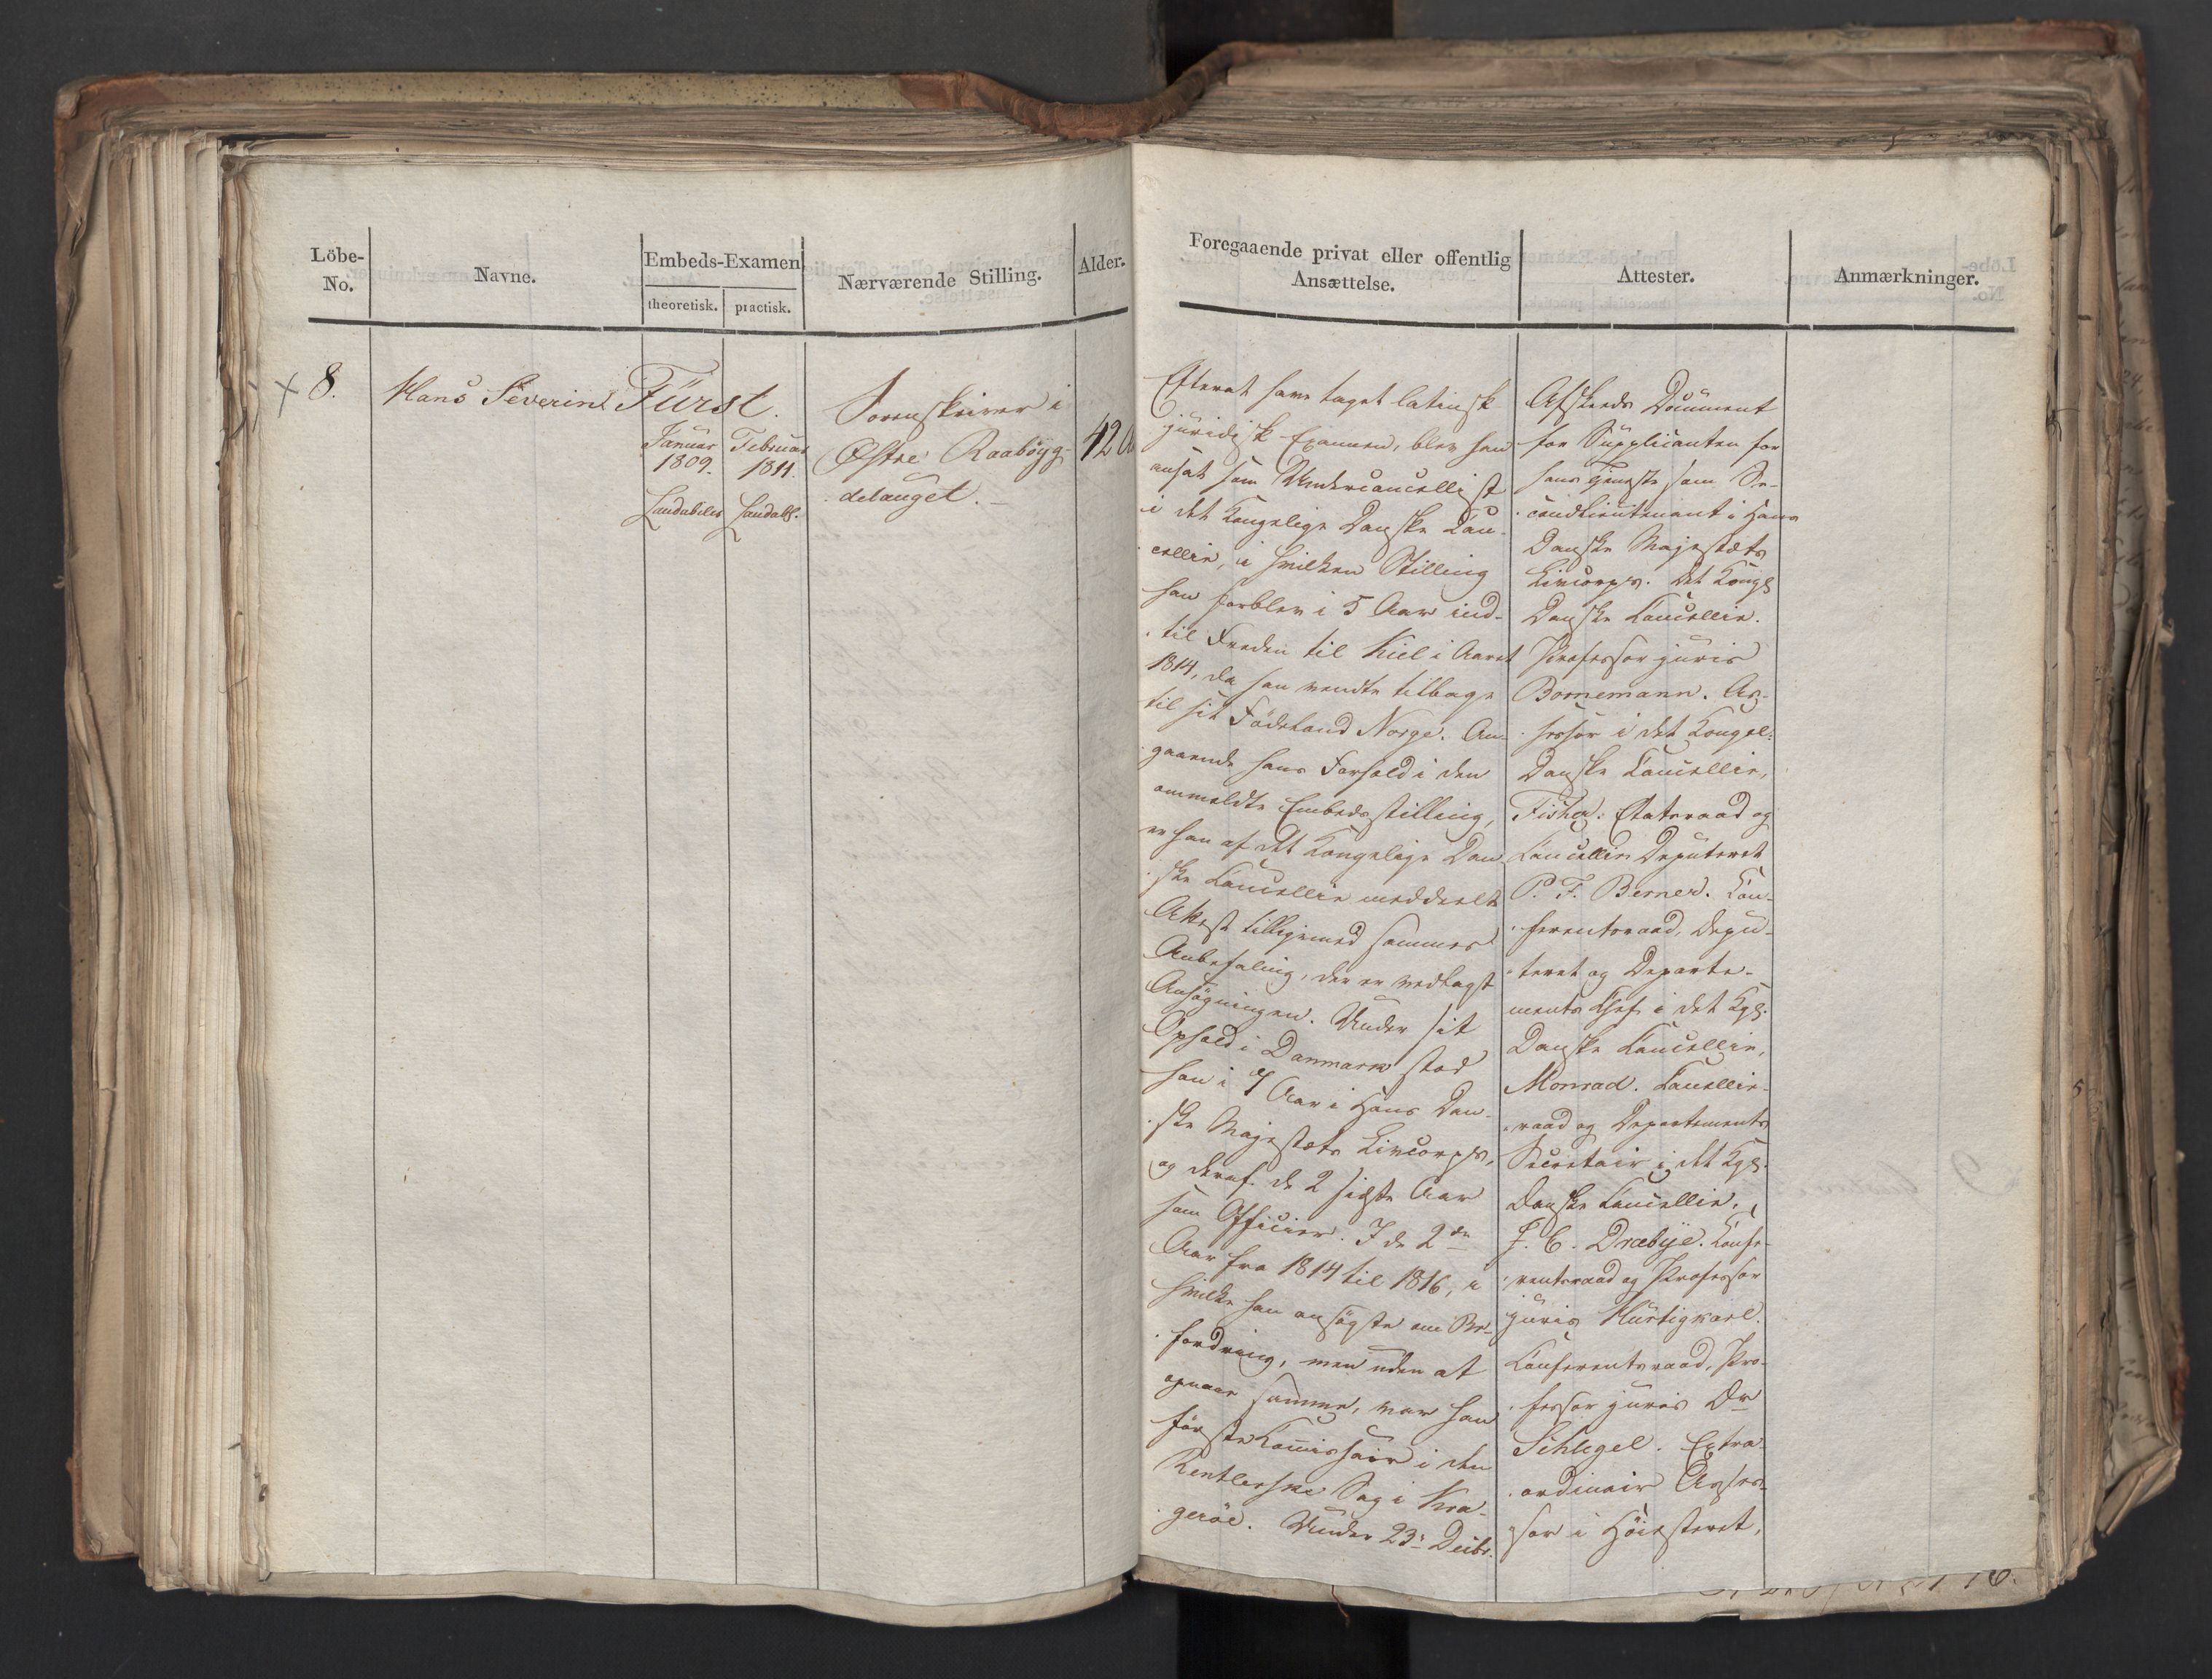 Löbe-
No.
Navne.
Embeds-Examen
theoretisk.
practisk.
Nærværende Stilling.
Alder.
8.
Hans Severin Fürst.
Januar
1809.
Laudabilis
Februar
1811.
Laudab.
Sorenskriver i
Østre Raabøyg-
delauget.
42
Foregaaende privat eller offentlig
Ansættelse.
Attester.
Anmærkninger.
Efterat have taget latinsk
juridisk Examen, blev han
ansat som Undercancellist
i det Kongelige Danske Can-
cellie, i hvilken Stilling
han forblev i 5 Aar ind-
til Freden til Kiel i Aaret
1814, da han vendte tilbage
til sit Födeland Norge. An-
gaaende hans Forhold i den
ommeldte Embedsstilling,
er han af det Kongelige Dan-
ske Cancellie meddeelt
Attest tilligemed sammes
Anbefaling, der er vedlagt
Ansøgningen. Under sit
Ophold i Danmark stod
han i 7 Aar i Hans Dan-
ske Majestæts Livcorps,
og deraf de 2 sidste Aar
som Officier. I de 2de
Aar fra 1814 til 1816, i
hvilke han ansøgte om Be-
fordring, men uden at
opnaae samme, var han
første Commissair i den
Sag i Kra-
geröe. Under 23: Decbr.
Afskeds Document
for Supplicanten for
hans Tjeneste som Se-
condlieutenant i Hans
Danske Majestæts
Livcorps. Det Kongl.
Danske Cancellie.
Professor juris
Bornemann. As-
sessor i det Kongel:
Danske Cancellie,
Fisher. Etatsraad og
Cancellie Deputeret
P. F. Berner. Con-
ferentsraad, Depu-
teret og Departe-
ments Chef i det Kgl.
Danske Cancellie,
Monrad. Cancellie-
raad og Departements
Secretair i det Kgl.
Danske Cancellie,
F. C. Dræbye. Confe-
rentsraad og Professor
juris Hurtigkarl.
Conferentsraad, Pro-
fessor juris Dr
Schlegel. Extra-
ordinair Asses-
sor i Höiesteret,